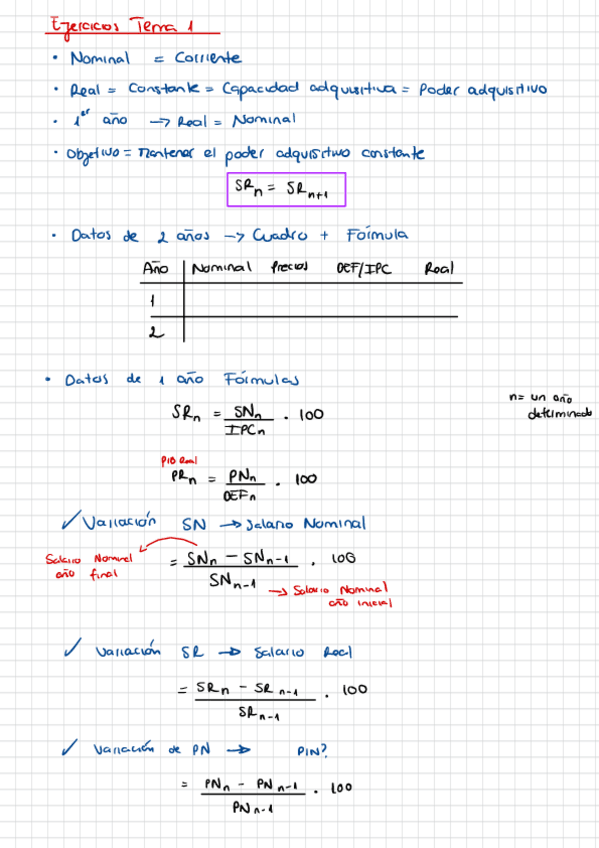 Ejercicios Tema 1
• Nominal = Corriente
• Real = Constante = Capacidad adquisitiva = Poder adquisitivo
• 1er año → Real = Nominal
• Objetivo = Mantener el poder adquisitivo constante
SRn = SRn+1
• Datos de 2 años → Cuadro + Fórmula
Año Nominal Precios DEF/IPC Real
1
2
• Datos de 1 año Fórmulas
n = un año determinado
SRn = SNn / IPCn . 100
PIB Real
PRn = PNn / DEFn . 100
✓ Variación SN → Salario Nominal
Salario Nominal año final
= SNn - SNn-1 / SNn-1 . 100
→ Salario Nominal año inicial
✓ Variación SR → Salario Real
= SRn - SRn-1 / SRn-1 . 100
✓ Variación de PN → PIN?
= PNn - PNn-1 / PNn-1 . 100